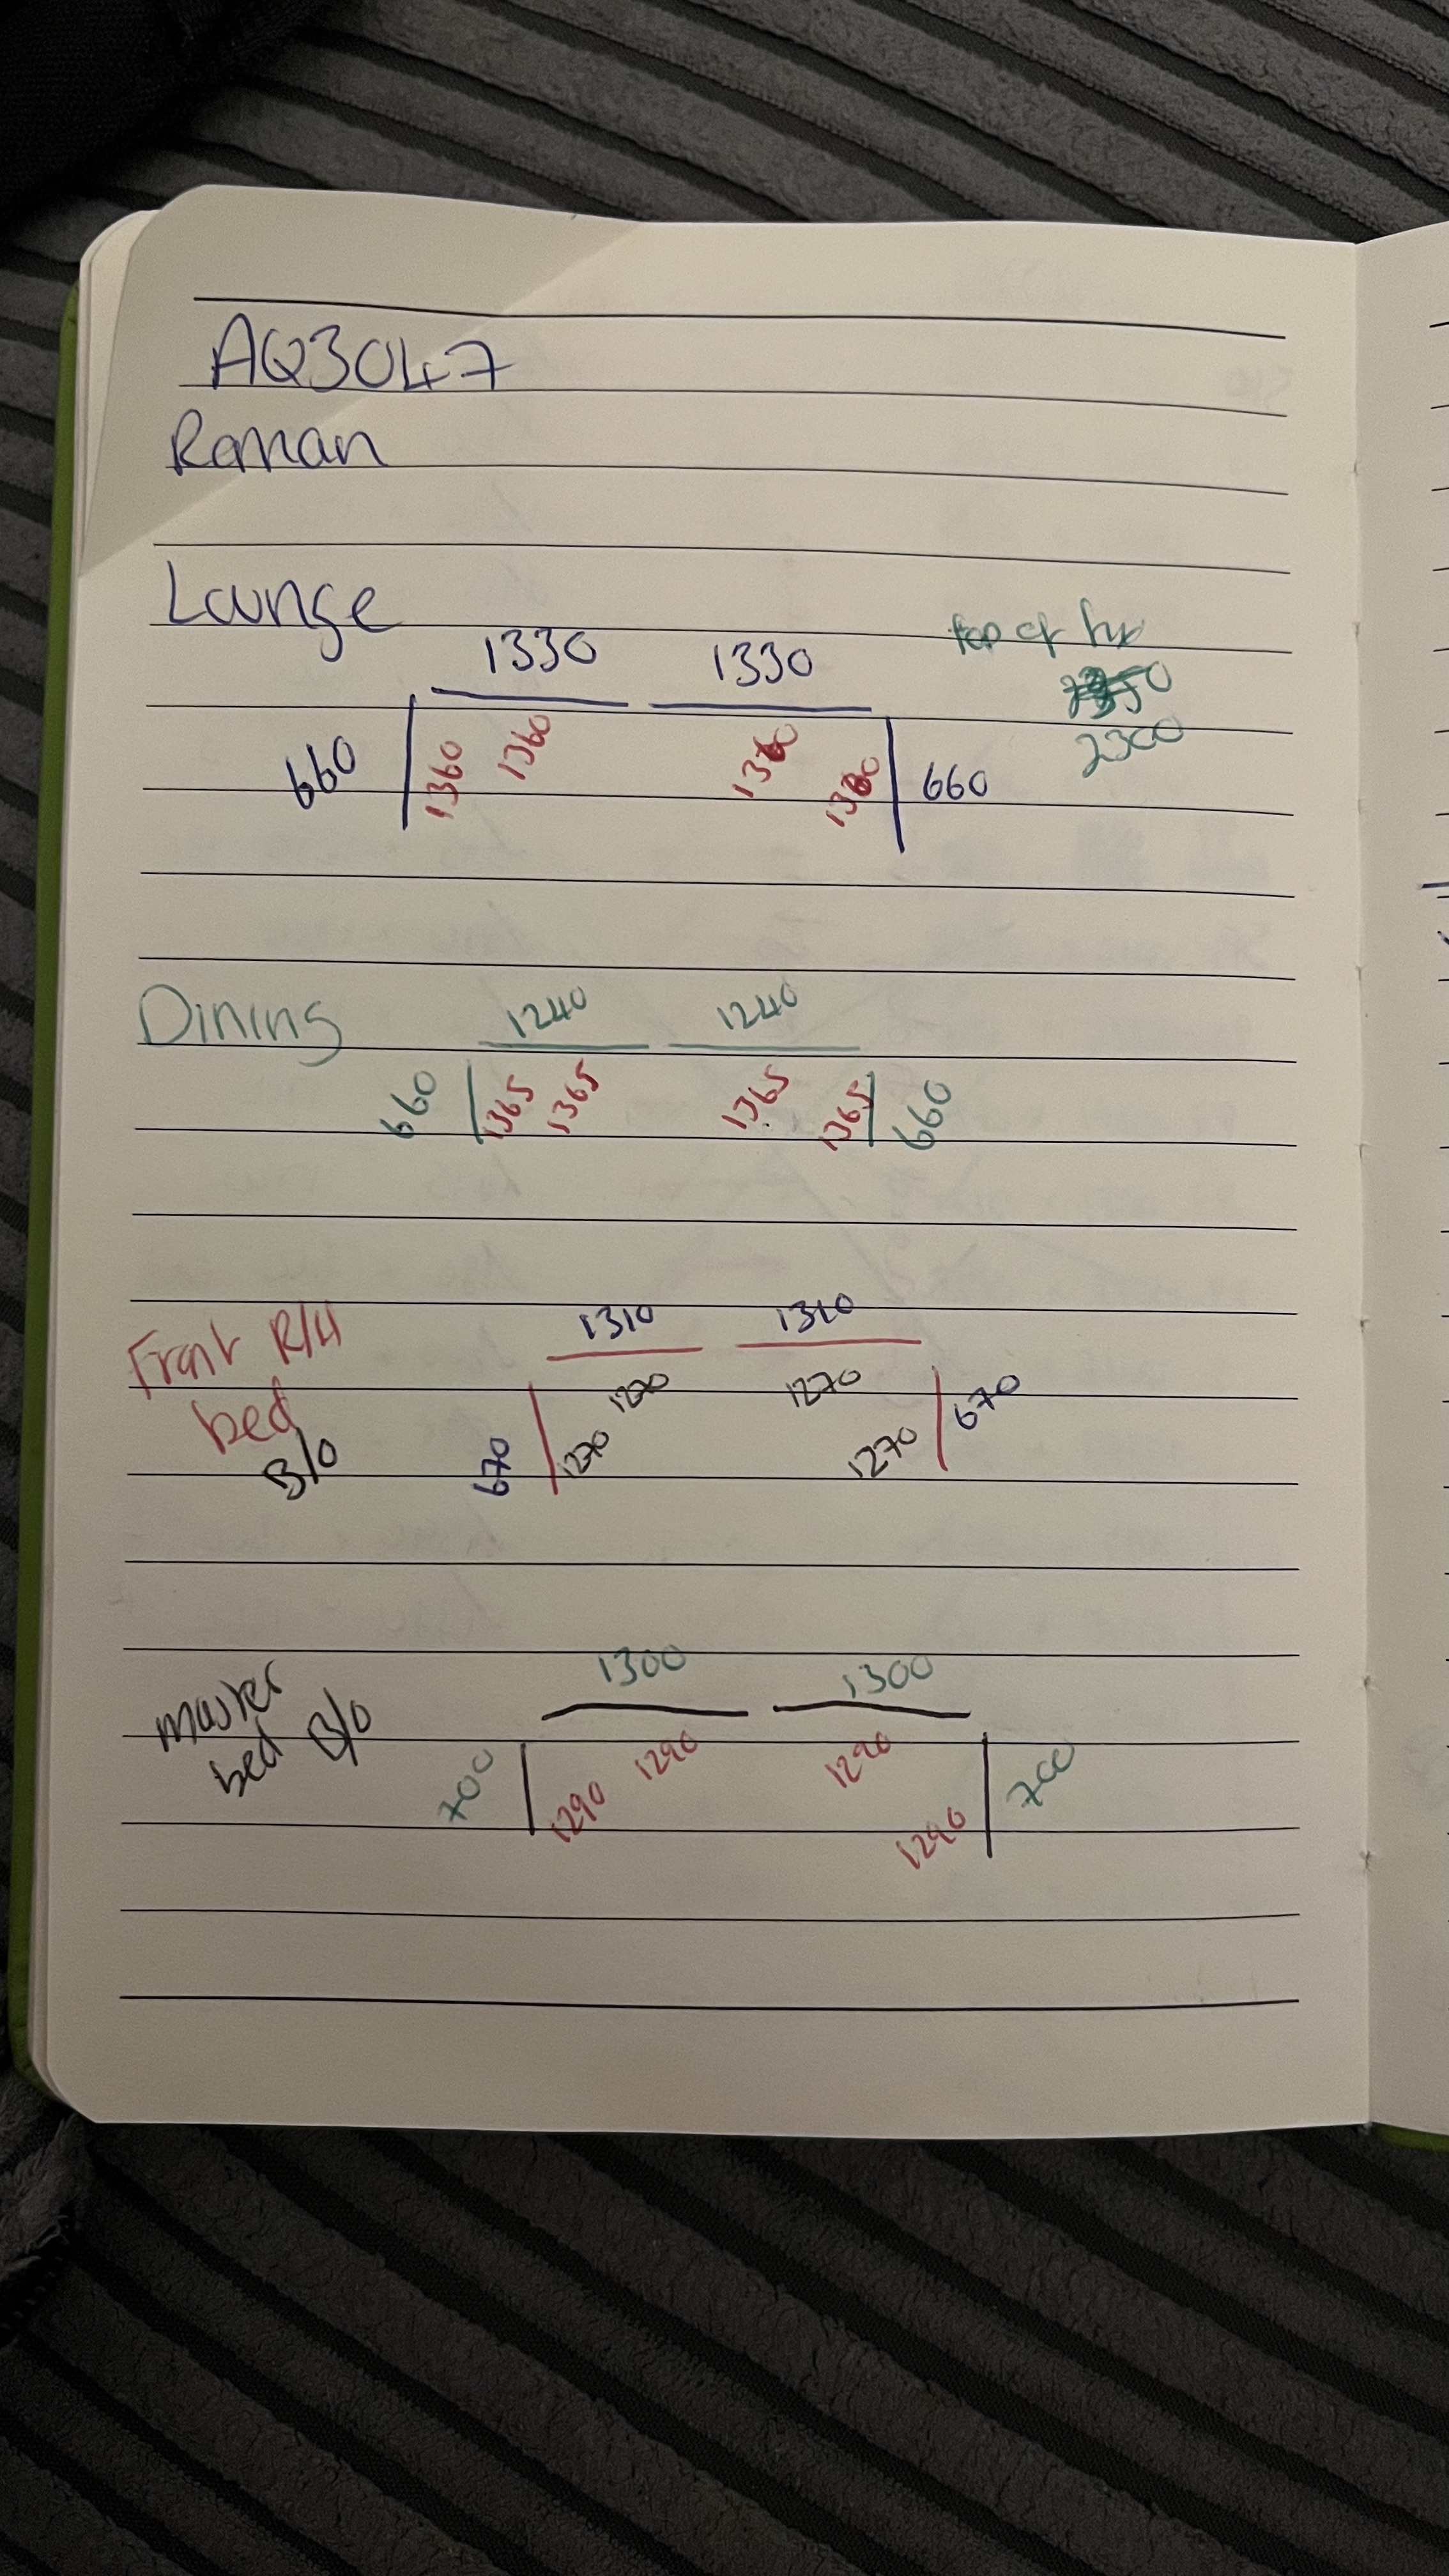 AQ3047
Roman
Lounge
1330 1330
top of
2300
660 1360 1360 1360 1360 660
Dining 1240 1240
660 1365 1365 1365 1365 660
Front R/H 1310 1310
bed 1270 1270
B/O 670 1270 1270 670
1300 1300
master
bed B/O 700 1290 1290 1290 1290 700